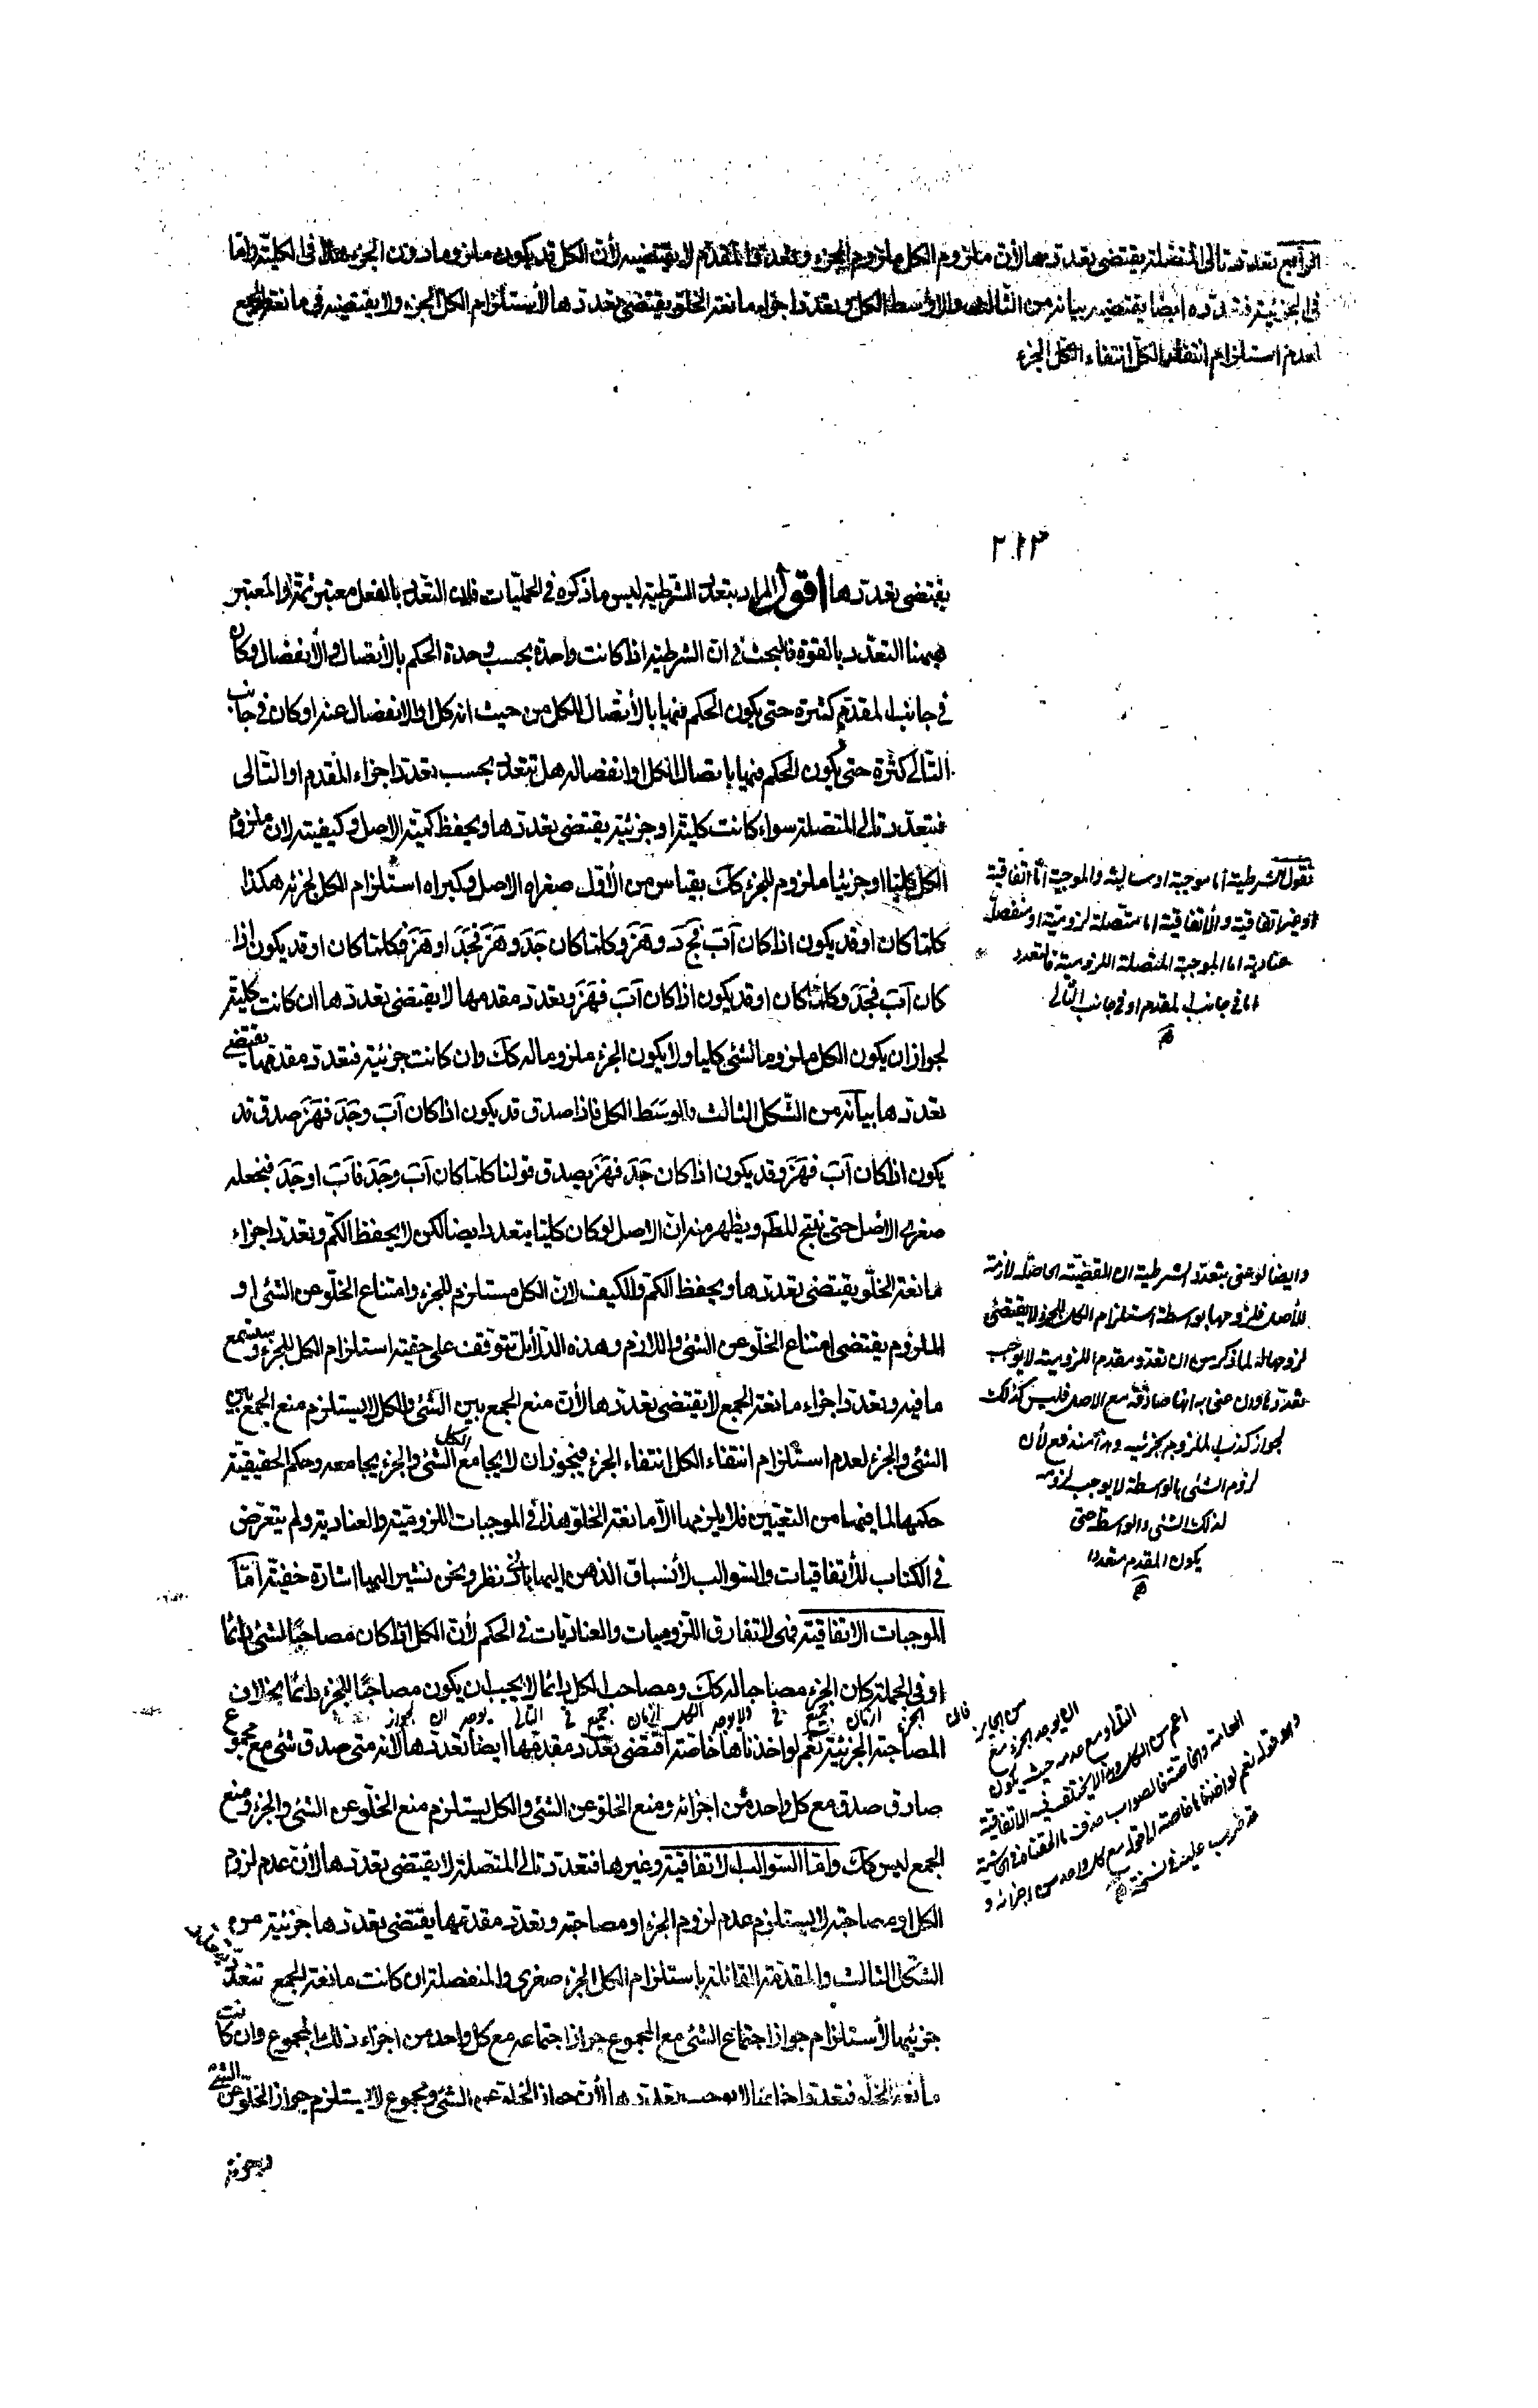 الرابع تعدد تالى المتصلة يقتضى تعددها لأن ملزوم الكل ملزوم الجزء وتعدد المقدم لا يقتضيه لأن الكل قد يكون ملزوما دون الجزء هذا فى الكلية واما
فى الجزئية فتعدده ايضا يقتضيه ببيانه من الثالث والاوسط الكل وتعدد اجزاء مانعة الخلو يقتضى تعددها لأستلزام الكل الجزء ولا يقتضيه فى مانعة الجمع
لعدم استلزام انتفاء الكل انتفاء الجزء
٢١٣
يقتضى تعددها اقول المراد بتعدد الشرطية ليس ما ذكره فى الحمليات فان التعدد بالفعل معتبر ثمة والمعتبر
ههنا التعدد بالقوة فالبحث فى ان الشرطية اذا كانت واحدة بحسب وحدة الحكم بالأتصال والأنفصال وكان
فى جانب المقدم كثرة حتى يكون الحكم فيها بالأتصال للكل من حيث انه كل او الانفصال عنه او كان فى جانب
التالى كثرة حتى يكون الحكم فيها باتصال الكل او انفصاله هل تتعدد بحسب تعدد اجزاء المقدم او التالى
فتعدد تالى المتصلة سواء كانت كلية او جزئية يقتضى تعددها ويحفظ كمية الاصل وكيفيته لان ملزوم
الكل كليا او جزئيا ملزوم للجزء كك بقياس من الأول صغراه الاصل وكبراه استلزام الكل لجزئه هكذا
كلما كان او قد يكون اذا كان آب فجد وهز وكلما كان جد وهز فجد او هز فكلما كان او قد يكون اذا
كان آب فجد وكلما كان او قد يكون اذا كان آب فهز وتعدد مقدمها لا يقتضى تعددها ان كانت كلية
لجواز ان يكون الكل ملزوما لشئ كليا ولا يكون الجزء ملزوما له كك وان كانت جزئية فتعدد مقدمها يقتضى
تعددها بيانه من الشكل الثالث والوسط الكل فاذا صدق قد يكون اذا كان آب وجد فهز صدق قد
يكون اذا كان آب فهز وقد يكون اذا كان جد فهز بصدق قولنا كلما كان آب وجد فآب او جد فنجعله
صغرى الاصل حتى ينتج المط ويظهر منه ان الاصل لو كان كليا يتعدد ايضا لكن لا يحفظ الكم وتعدد اجزاء
مانعة الخلو يقتضى تعددها ويحفظ الكم والكيف لان الكل مستلزم للجزء وامتناع الخلو عن الشئ او
الملزوم يقتضى امتناع الخلو عن الشئ واللازم وهذه الدلائل تتوقف على حقية استلزام الكل للجزء وستسمع
ما فيه وتعدد اجزاء مانعة الجمع لا يقتضى تعددها لأن منع الجمع بين الشئ والكل لا يستلزم منع الجمع بين
الشئ والجزء لعدم استلزام انتفاء الكل انتفاء الجزء فيجوز ان لا يجامع الكل الشئ والجزء يجامعه وحكم الحقيقية
حكمهما لما فيها من التعيين فلا يلزمها الا مانعة الخلو هذا فى الموجبات اللزومية والعنادية ولم يتعرض
فى الكتاب للأتفاقيات والسوالب لأنسباق الذهن اليها بادنى نظر ونحن نشير اليها اشارة خفية اما
الموجبات الاتفاقية فهى لا تفارق اللزوميات والعناديات فى الحكم لأن الكل اذا كان مصاحبا لشئ دائما
او فى الجملة كان الجزء مصاحبا له كك ومصاحب الكل دائما لا يجب ان يكون مصاحبا للجزء دائما بخلاف
المصاحبة الجزئية نعم لو اخذناها خاصة اقتضى تعدد مقدمها ايضا تعددها لانه متى صدق شئ مع مجموع
صادق صدق مع كل واحد من اجزائه ومنع الخلو عن الشئ والكل يستلزم منع الخلو عن الشئ والجزء ومنع
الجمع ليس كك واما السوالب الاتفاقية وغيرها فتعدد تالى المتصلة لا يقتضى تعددها لأن عدم لزوم
الكل او مصاحبته لا يستلزم عدم لزوم الجزء او مصاحبته وتعدد مقدمها يقتضى تعددها جزئية من
الشكل الثالث والمقدمة القائلة باستلزام الكل الجزء صغرى والمنفصلة ان كانت مانعة الجمع تتعدد
جزئيها لأستلزام جواز اجتماع الشئ مع المجموع جواز اجتماعه مع كل واحد من اجزاء ذلك المجموع وان كانت
مانعة الخلو فتعدد اجزائها لا يوجب تعددها لأن جواز الخلو عن الشئ ومجموع لا يستلزم جواز الخلو عن الشئ
وجزئه
نقول الشرطية اما موجبة او سالبة والموجبة اما اتفاقية
او غير اتفاقية والأتفاقية اما متصلة لزومية او منفصلة
عنادية اما الموجبة المتصلة اللزومية فالتعدد
اما فى جانب المقدم او فى جانب التالى
وايضا لو عنى بتعدد الشرطية ان القضية الحاصلة لازمة
للأصل فلزومها بواسطة استلزام الكل الجزء لا يقتضى
لزومها له لما ذكر من ان تعدد مقدم اللزومية لا يوجب
تعددها وان عنى به انها صادقة مع الاصل فليس كذلك
لجواز كذب الملزوم بجزئيه وهذا مندفع لأن
لزوم الشئ بالواسطة لا يوجب لزومه
لذلك الشئ والواسطة حتى
يكون المقدم متعددا